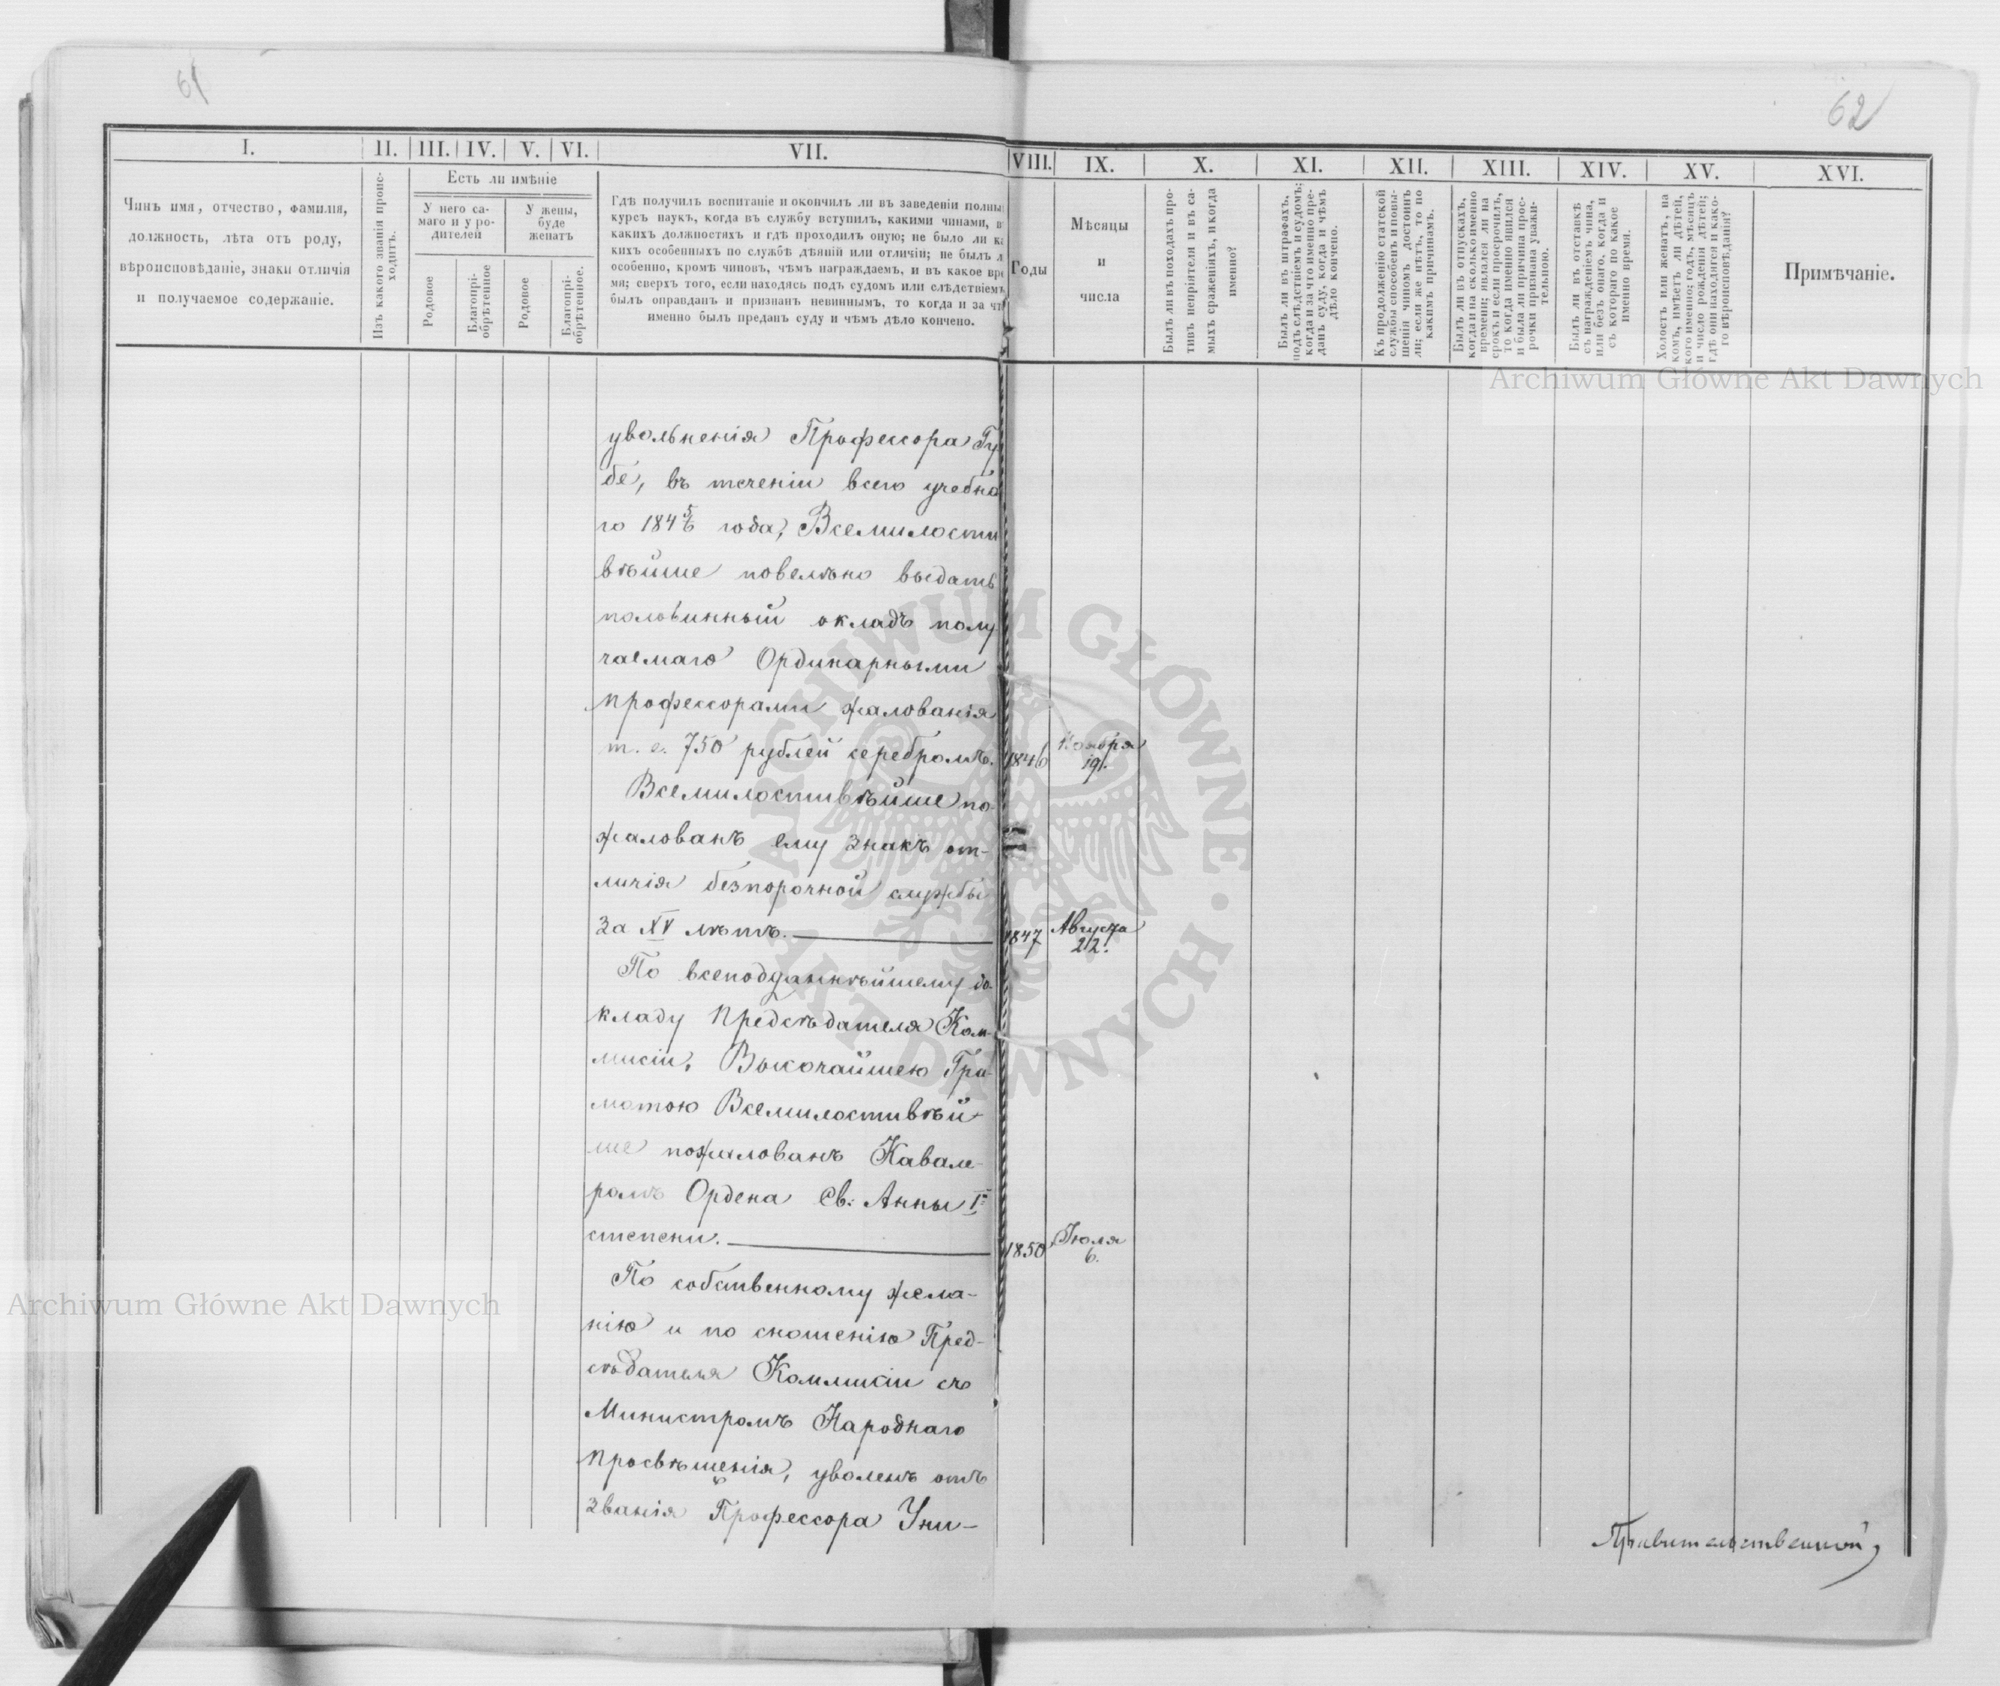 61
62
I.
II.
III.
IV.
V.
VI.
VII.
VIII.
IX.
X.
XI.
XII.
XIII.
XIV.
XV.
XVI.
Чинъ имя, отчество, фамилія,
должность, лѣта отъ роду,
вѣроисповѣданіе, знаки отличія
и получаемое содержаніе.
Изъ какого званія проис-
ходитъ.
Есть ли имѣніе
У него са-
маго и у ро-
дителей
У жены,
буде
женатъ
Родовое
Благопрі-
обрѣтенное
Родовое
Благопрі-
обрѣтенное.
Гдѣ получилъ воспитаніе и окончилъ ли въ заведеніи полный
курсъ наукъ, когда въ службу вступилъ, какими чинами, въ
какихъ должностяхъ и гдѣ проходилъ оную; не было ли ка
кихъ особенныхъ по службѣ дѣяній или отличій; не былъ л
особенно, кромѣ чиновъ, чѣмъ награждаемъ, и въ какое вре
мя; сверхъ того, если находясь подъ судомъ или слѣдствіемъ
былъ оправданъ и признанъ невиннымъ, то когда и за чт
именно былъ преданъ суду и чѣмъ дѣло кончено.
Годы
Мѣсяцы
и
числа
Былъ ли въ походахъ про-
тивъ непріятеля и въ са-
мыхъ сраженіяхъ, и когда
именно?
Былъ ли въ штрафахъ,
подъ слѣдствіемъ и судомъ;
когда и за что именно пре-
данъ суду, когда и чѣмъ
дѣло кончено.
Къ продолженію статской
службы способенъ и повы-
шенія чиномъ достоинъ
ли; если же нѣтъ, то по
какимъ причинамъ.
Былъ ли въ отпускахъ,
когда и на сколько именно
времени; являлся ли на
срокъ и если просрочилъ,
то когда именно явился
и была ли причина прос-
рочки признана уважи-
тельною.
Былъ ли въ отставкѣ
съ награжденіемъ чина,
или безъ онаго, когда и
съ котораго по какое
именно время.
Холостъ или женатъ, на
комъ, имѣетъ ли дѣтей,
кого именно; годъ, мѣсяцъ
и число рожденія дѣтей;
гдѣ они находятся и како-
го вѣроисповѣданія?
Примѣчаніе.
увольненія Профессора Гу
бе, въ теченіи всего учебна
го 184 5/6 года, Всемилости
вѣйше повелѣно выдать
половинный окладъ полу
чаемаго Ординарными
Профессорами жалованія
т. е. 750 рублей серебромъ.
1846
Ноября
19.
Всемилостивѣйше по-
жалованъ ему Знакъ от-
личія безпорочной службы
за XV лѣтъ.
1847
Августа
22.
По всеподданнѣйшему до-
кладу Предсѣдателя Ком-
мисіи, Высочайшею Гра
мотою Всемилостивѣй-
ше пожалованъ Кавале-
ромъ Ордена Св: Анны I
степени.
1850
Іюля
6.
По собственному жела-
нію и по сношенію Пред-
сѣдателя Коммисіи съ
Министромъ Народнаго
Просвѣщенія, уволенъ отъ
званія Профессора Уни-
Правительственной
Archiwum Główne Akt Dawnych
Archiwum Główne Akt Dawnych
ARCHIWUM GŁÓWNE · AKT DAWNYCH ·